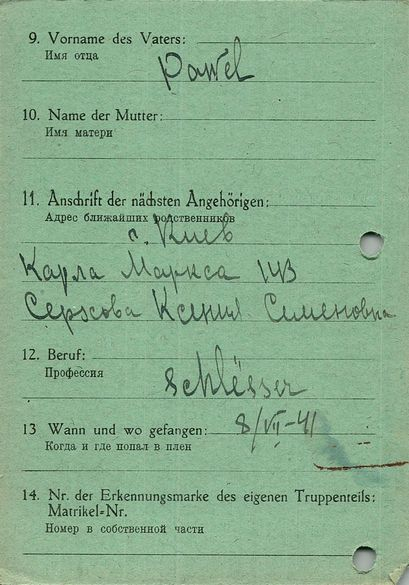 9. Vorname des Vaters:
Имя отца
Pawel
10. Name der Mutter:
Имя матери
11. Anschrift der nächsten Angehörigen:
Адрес ближайших родственников
г. Киев
Карла Маркса
Ксения Сименовна
12. Beruf:
Профессия
Schlösser
13 Wann und wo gefangen: 8/VII-41
Когда и где попал в плен
14. Nr. der Erkennungsmarke des eigenen Truppenteils:
Matrikel=Nr.
Номер в собственной части